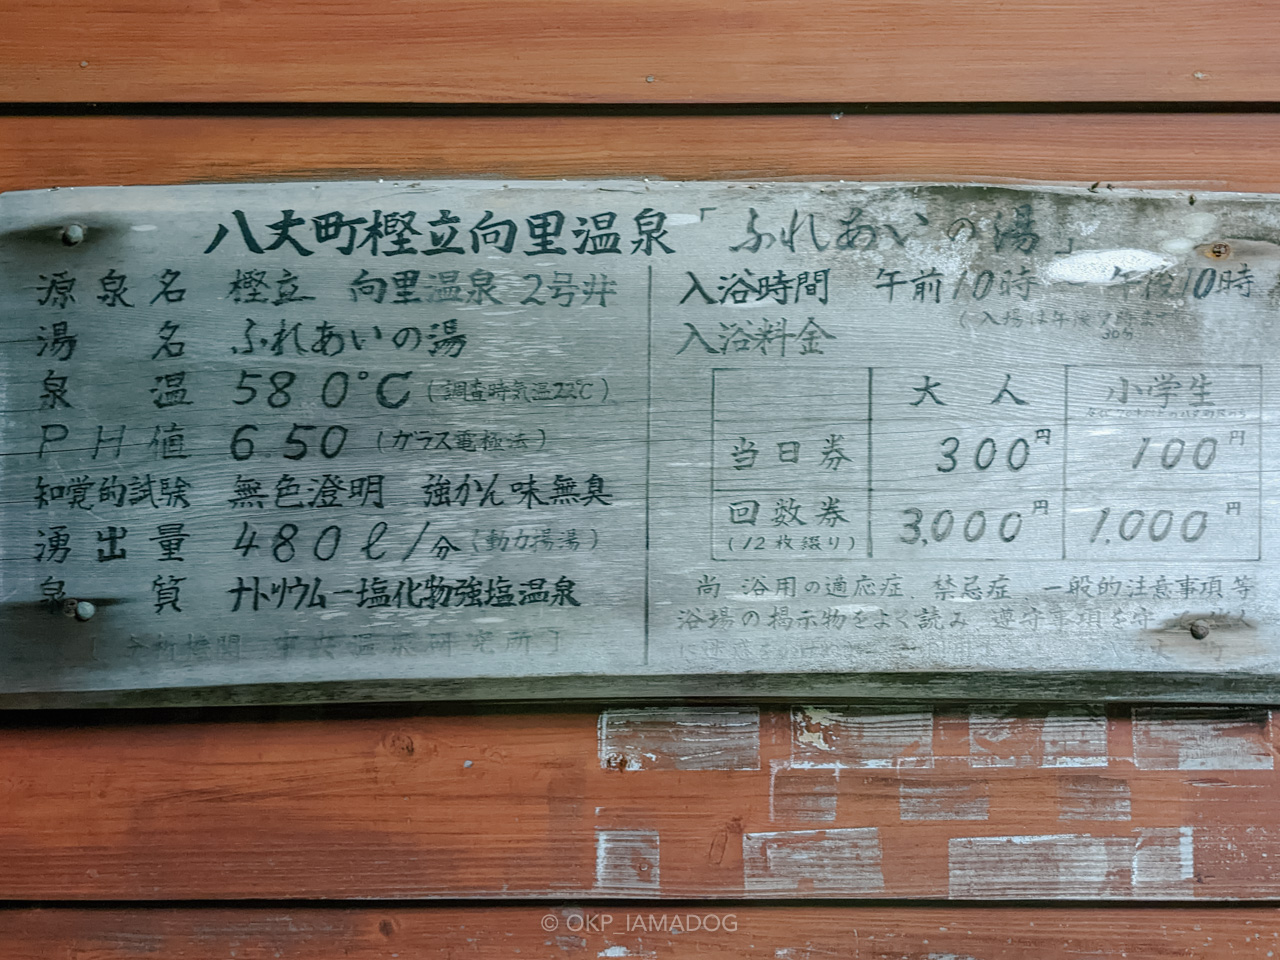 八丈町樫立向里温泉「ふれあいの湯」
源泉名 樫立 向里温泉 2号井
湯名 ふれあいの湯
泉温 58 0°C (調査時気温22℃)
PH値 6.50 (ガラス電極法)
知覚的試験 無色澄明 強かん味無臭
湧出量 480ℓ/分 (動力揚湯)
泉質 ナトリウム－塩化物強塩温泉
[分析機関 中央温泉研究所]
入浴時間 午前10時 午後10時
(入場は午後 30分
入浴料金
大人 小学生
当日券 300円 100円
回数券 3,000円 1,000円
(12枚綴り)
尚 浴用の適応症、禁忌症、一般的注意事項等
浴場の掲示物をよく読み 遵守事項を守
© OKP_IAMADOG